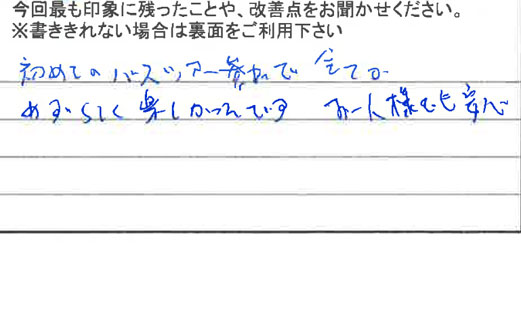 今回最も印象に残ったことや、改善点をお聞かせください。
※書ききれない場合は裏面をご利用下さい
初めてのバスツアー参加で 全てが
めずらしく楽しかったです お一人様でも安心